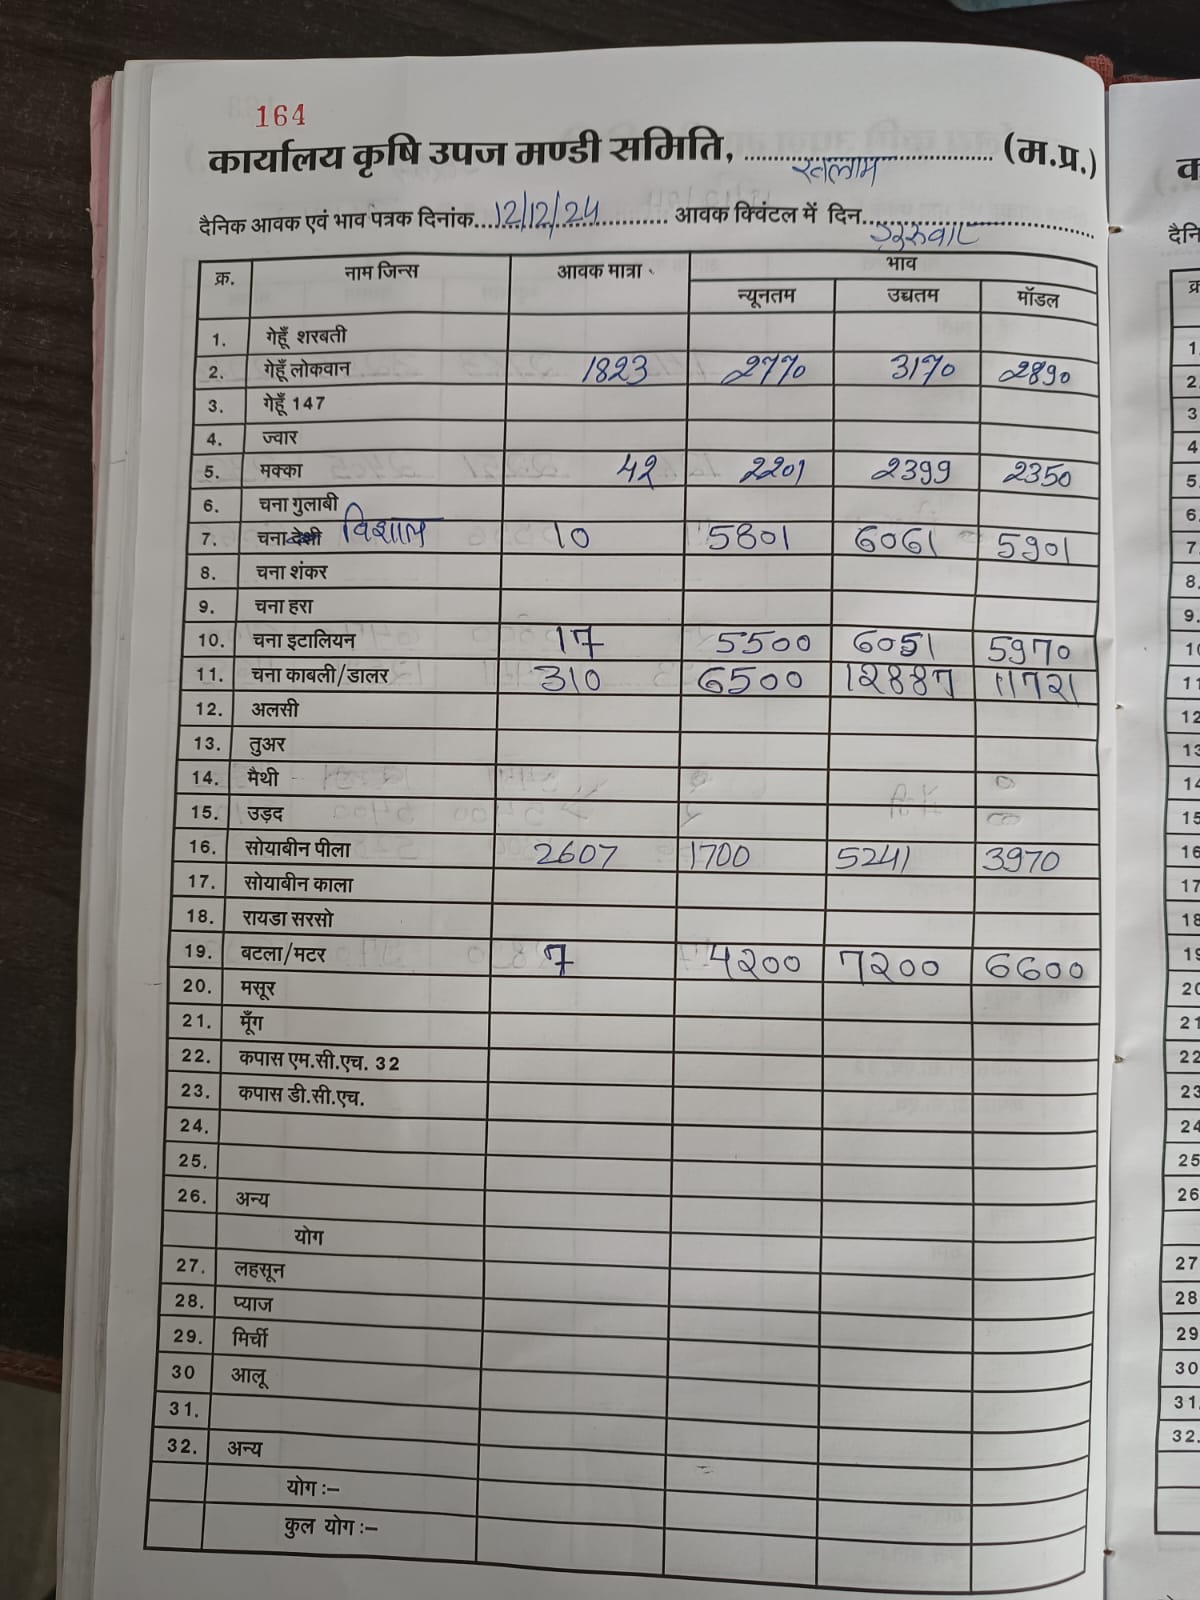 164
कार्यालय कृषि उपज मण्डी समिति, रतलाम (म.प्र.)
दैनिक आवक एवं भाव पत्रक दिनांक 12/12/24 आवक क्विंटल में दिन गुरुवार
क्र. नाम जिन्स आवक मात्रा भाव
न्यूनतम उच्चतम मॉडल
1. गेहूँ शरबती
2. गेहूँ लोकवान 1823 2770 3170 2890
3. गेहूँ 147
4. ज्वार
5. मक्का 42 2201 2399 2350
6. चना गुलाबी
7. चना देशी विशाल 10 5801 6061 5901
8. चना शंकर
9. चना हरा
10. चना इटालियन 17 5500 6051 5970
11. चना काबली/डालर 310 6500 12887 11721
12. अलसी
13. तुअर
14. मैथी
15. उड़द
16. सोयाबीन पीला 2607 1700 5241 3970
17. सोयाबीन काला
18. रायडा सरसो
19. बटला/मटर 7 4200 7200 6600
20. मसूर
21. मूँग
22. कपास एम.सी.एच. 32
23. कपास डी.सी.एच.
24.
25.
26. अन्य
योग
27. लहसून
28. प्याज
29. मिर्ची
30 आलू
31.
32. अन्य
योग :–
कुल योग :–